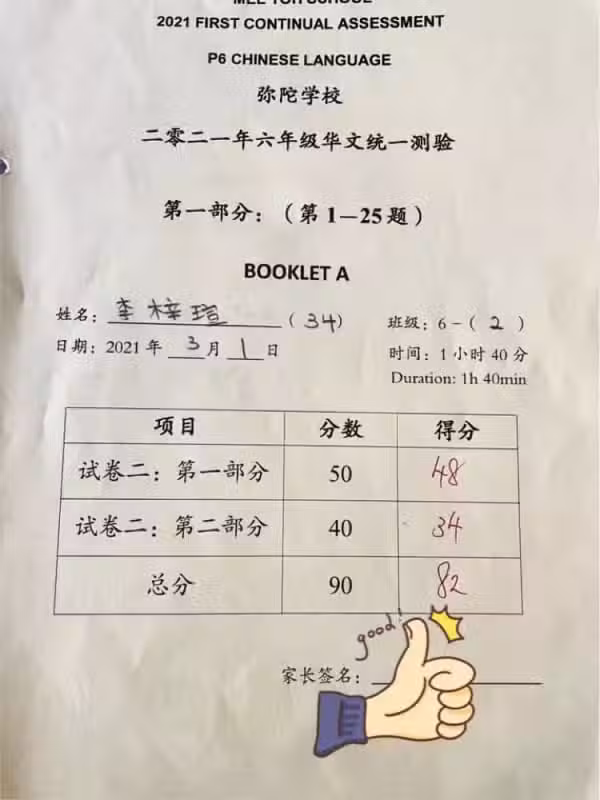 MEE TOH SCHOOL
2021 FIRST CONTINUAL ASSESSMENT
P6 CHINESE LANGUAGE
弥陀学校
二零二一年六年级华文统一测验
第一部分：（第 1—25 题）
BOOKLET A
姓名：李梓瑄 （34） 班级：6 -（ 2 ）
日期：2021 年 3 月 1 日 时间：1 小时 40 分
Duration: 1h 40min
项目 分数 得分
试卷二：第一部分 50 48
试卷二：第二部分 40 34
总分 90 82
good!
家长签名：